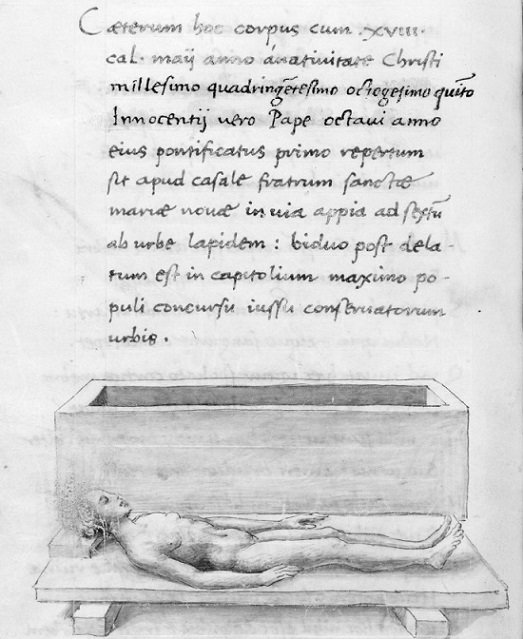 Cæterum hoc corpus cum .XVIII.
cal. maij anno ánativitate Christi
millesimo quadringētesimo octogesimo quīto
Innocentij vero Pape octavi anno
eius pontificatus primo repertum
sit apud casale fratrum sanctæ
mariæ novæ in via appia ad sextū
ab urbe lapidem : biduo post dela-
tum est in capitolium maximo po-
puli concursu iussu conservatorum
urbis .